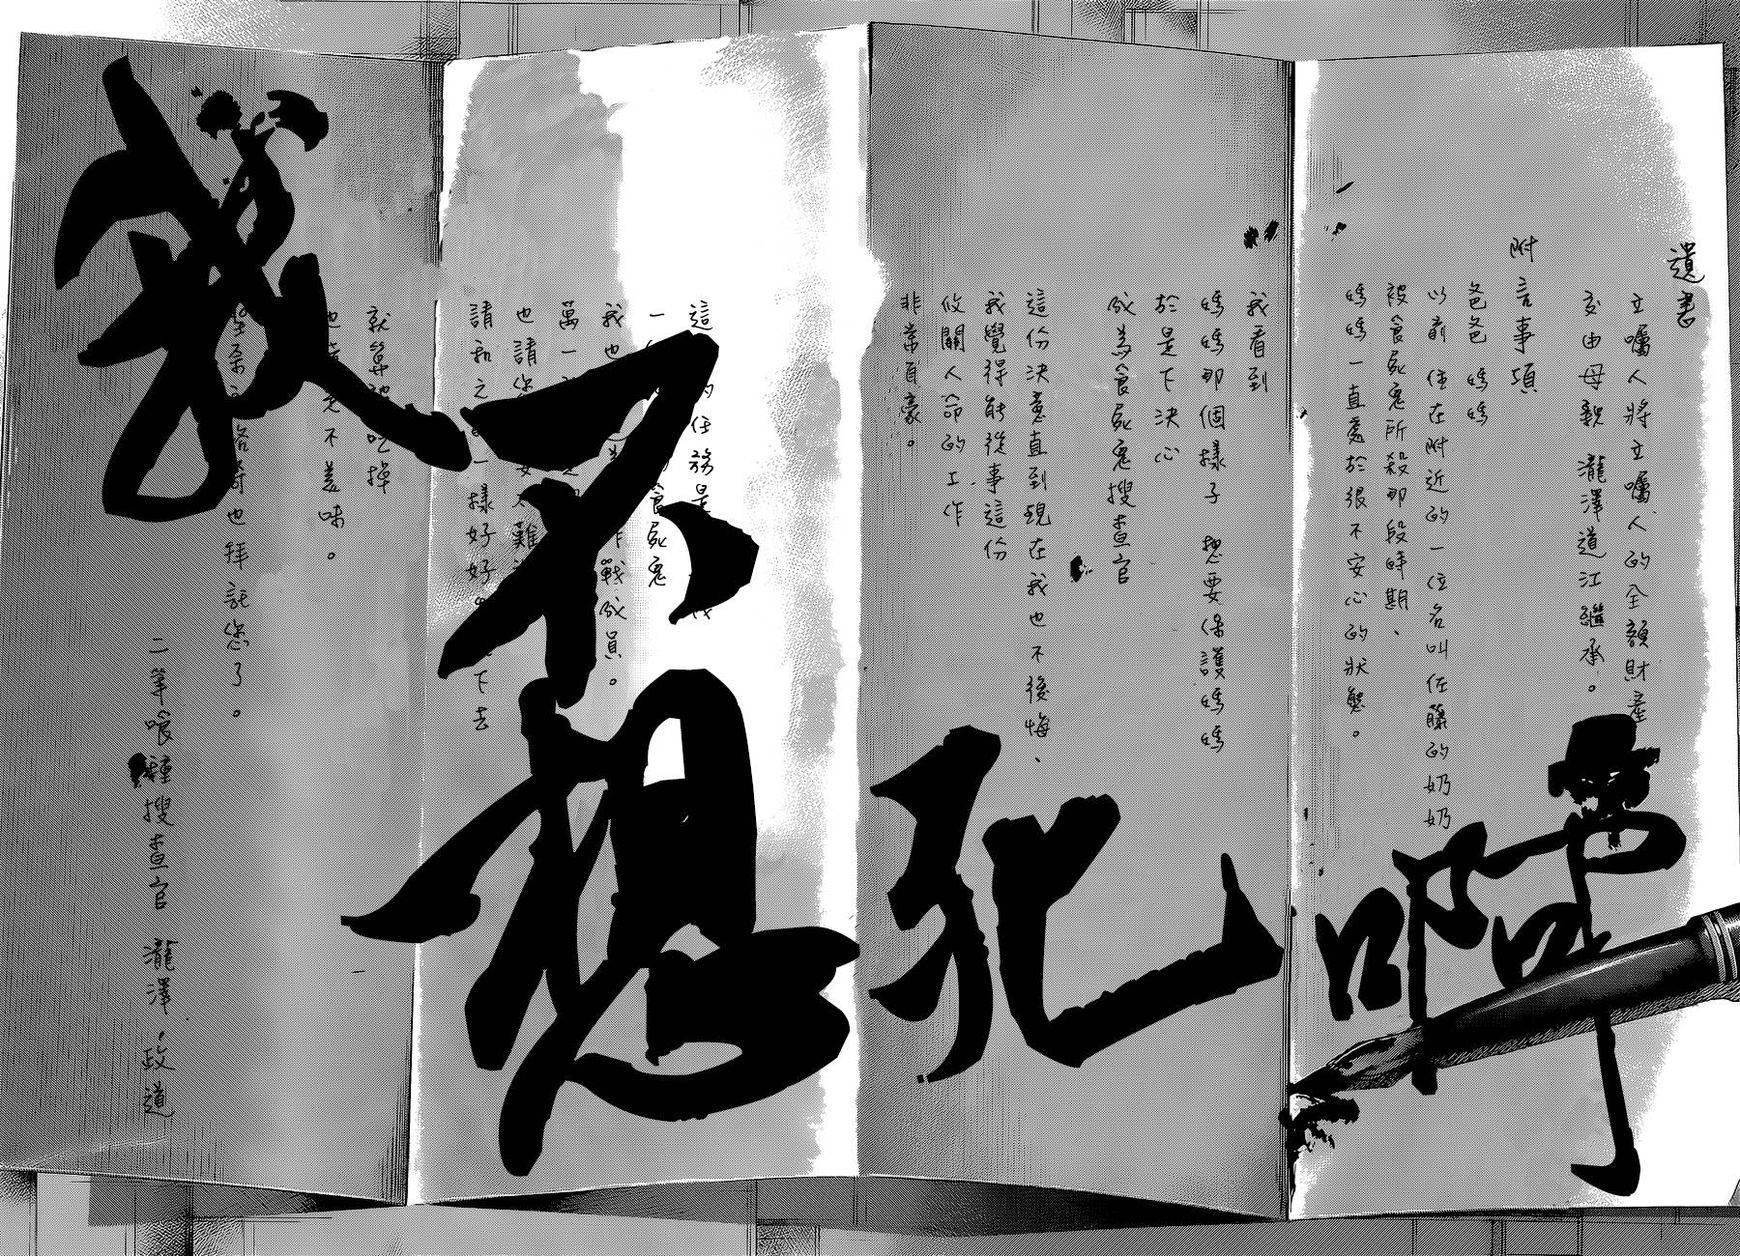 遺書
立囑人將立囑人的全額財產
交由母親 瀧澤道江繼承。
附言事項
爸爸 媽媽
以前住在附近的一位名叫佐藤的奶奶
被食屍鬼所殺那段時期、
媽媽一直處於很不安心的狀態。
我看到
媽媽那個樣子 想要保護媽媽
於是下決心
成為食屍鬼搜查官
這份決意直到現在我也不後悔、
我覺得能從事這份
攸關人命的工作
非常自豪。
這 的任務是
一 食屍鬼
我也 作戰成員。
萬一
也請您 不 難
請和之 一樣好好 下去
就算被吃掉
也 不美味。
也拜託您了。
二等喰種搜查官 瀧澤 政道
我不想死啊